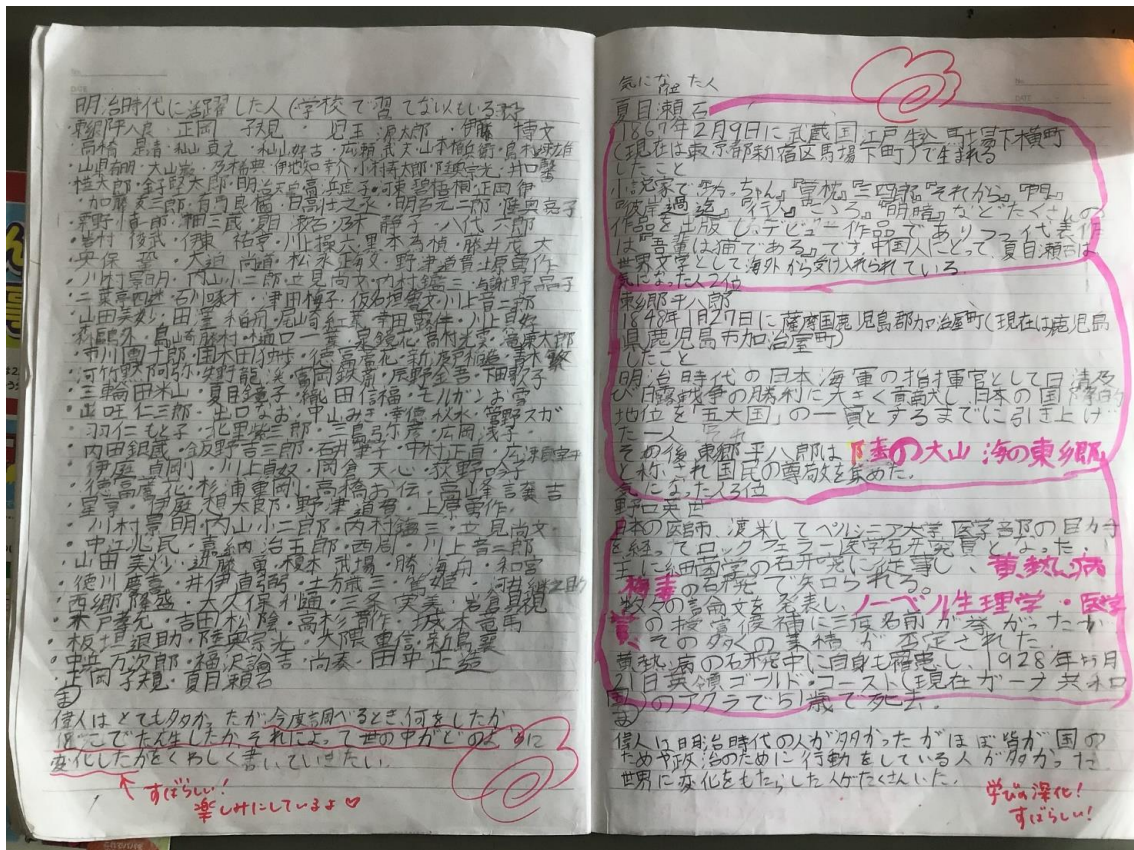 明治時代に活躍した人(学校で習てない人もいる
・東郷平八郎・正岡子規・児玉源太郎・伊藤博文
・高橋是清・秋山真之・秋山好古・広瀬武夫・山本権兵衛・島村速雄
・山県有朋・大山巌・乃木希典・伊地知幸介・小村寿太郎・陸奥宗光・井口
・桂太郎・金子堅太郎・明治天皇・高浜虚子・河東碧梧桐・正岡律
・加藤友三郎・有馬良橘・日高壮之丞・明石元二郎・陸奥亮子
・森野慎一郎・柳三蔵・夏目漱石・乃木静子・八代六郎
・岩村俊武・伊東祐亨・川上操六・黒木為楨・藤井茂太
・奥保鞏・大迫尚道・松永正敏・野津道貫・上原勇作
・川村景明・内山小二郎・立見尚文・内村鑑三・与謝野晶子
・二葉亭四迷・石川啄木・津田梅子・仮名垣魯文・川上音二郎
・山田美妙・田山花袋・尾崎紅葉・幸田露伴・川上貞奴
・森鷗外・島崎藤村・樋口一葉・泉鏡花・高村光雲・滝廉太郎
・市川團十郎・国木田独歩・徳冨蘆花・新渡戸稲造・青木繁
・河竹黙阿弥・矢野龍渓・富岡鉄斎・辰野金吾・下田歌子
・三輪田米山・夏目鏡子・織田信福・モルガンお雪
・出口仁三郎・出口なお・中山みき・幸徳秋水・管野スガ
・羽仁もと子・北里柴三郎・三島弥彦・広岡浅子
・内田銀蔵・飯野吉三郎・石井筆子・中村正直・
・伊庭貞剛・川上貞奴・岡倉天心・荻野吟子
・徳富蘆花・杉浦重剛・高橋お伝・高峰譲吉
・星亨・伊庭想太郎・野津道貫・上原勇作・
・川村景明・内山小二郎・内村鑑三・立見尚文・
・中江兆民・嘉納治五郎・西周・川上音二郎
・山田美妙・近藤勇・榎本武揚・勝海舟・和宮
・徳川慶喜・井伊直弼・土方歳三・篤姫・河井継之助
・西郷隆盛・大久保利通・三条実美・岩倉具視
・木戸孝允・吉田松陰・高杉晋作・坂本竜馬
・板垣退助・陸奥宗光・大隈重信・新島襄
・中浜万次郎・福沢諭吉・尚泰・田中正造
・正岡子規・夏目瀬石
偉人はとても多かったが、今度調べるとき、何をしたか
どこでたん生したか、それによって世の中がどのように
変化したかをくわしく書いていきたい。
すばらしい!
楽しみにしているよ♡
気になった人
夏目瀬石
1867年2月9日に武蔵国江戸牛込馬場下横町
(現在は東京都新宿区馬場下町)で生まれる
したこと
小説家で『坊っちゃん』『草枕』『三四郎』『それから』『門』
『彼岸過迄』『行人』『こころ』『明暗』などたくさんの
作品を出版し、デビュー作品でありつつ代表作
は『吾輩は猫である』です。中国人にとって、夏目瀬石は
世界文学として海外から受け入れられている。
気になった人2位
東郷平八郎
1848年1月27日に薩摩国鹿児島郡加治屋町(現在は鹿児島
県鹿児島市加治屋町)
したこと
明治時代の日本海軍の指揮官として日清及
び日露戦争の勝利に大きく貢献し、日本の国際的
地位を「五大国」の一員とするまでに引き上げ
た一人
その後、東郷平八郎は「陸の大山 海の東郷」
と称され国民の尊敬を集めた。
気になった人3位
野口英世
日本の医師、渡米してペルシニア大学医学部の助手
を経ってロックフェラー医学研究員となった。
主に細菌学の研究に従事し、黄熱病
梅毒の研究で知られる。
数々の論文を発表し、ノーベル生理学・医学
賞の授賞候補に三度名前が挙がったが
、その多くの業績が否定された。
黄熱病の研究中に自身も罹患し、1928年5月
21日英領ゴールド・コースト(現在ガーナ共和
国)のアクラで51歳で死去。
偉人は明治時代の人が多かったがほぼ皆が国の
ためや政治のために行動をしている人が多かった。
世界に変化をもたらした人がたくさんいた。
学びの深化!
すばらしい!